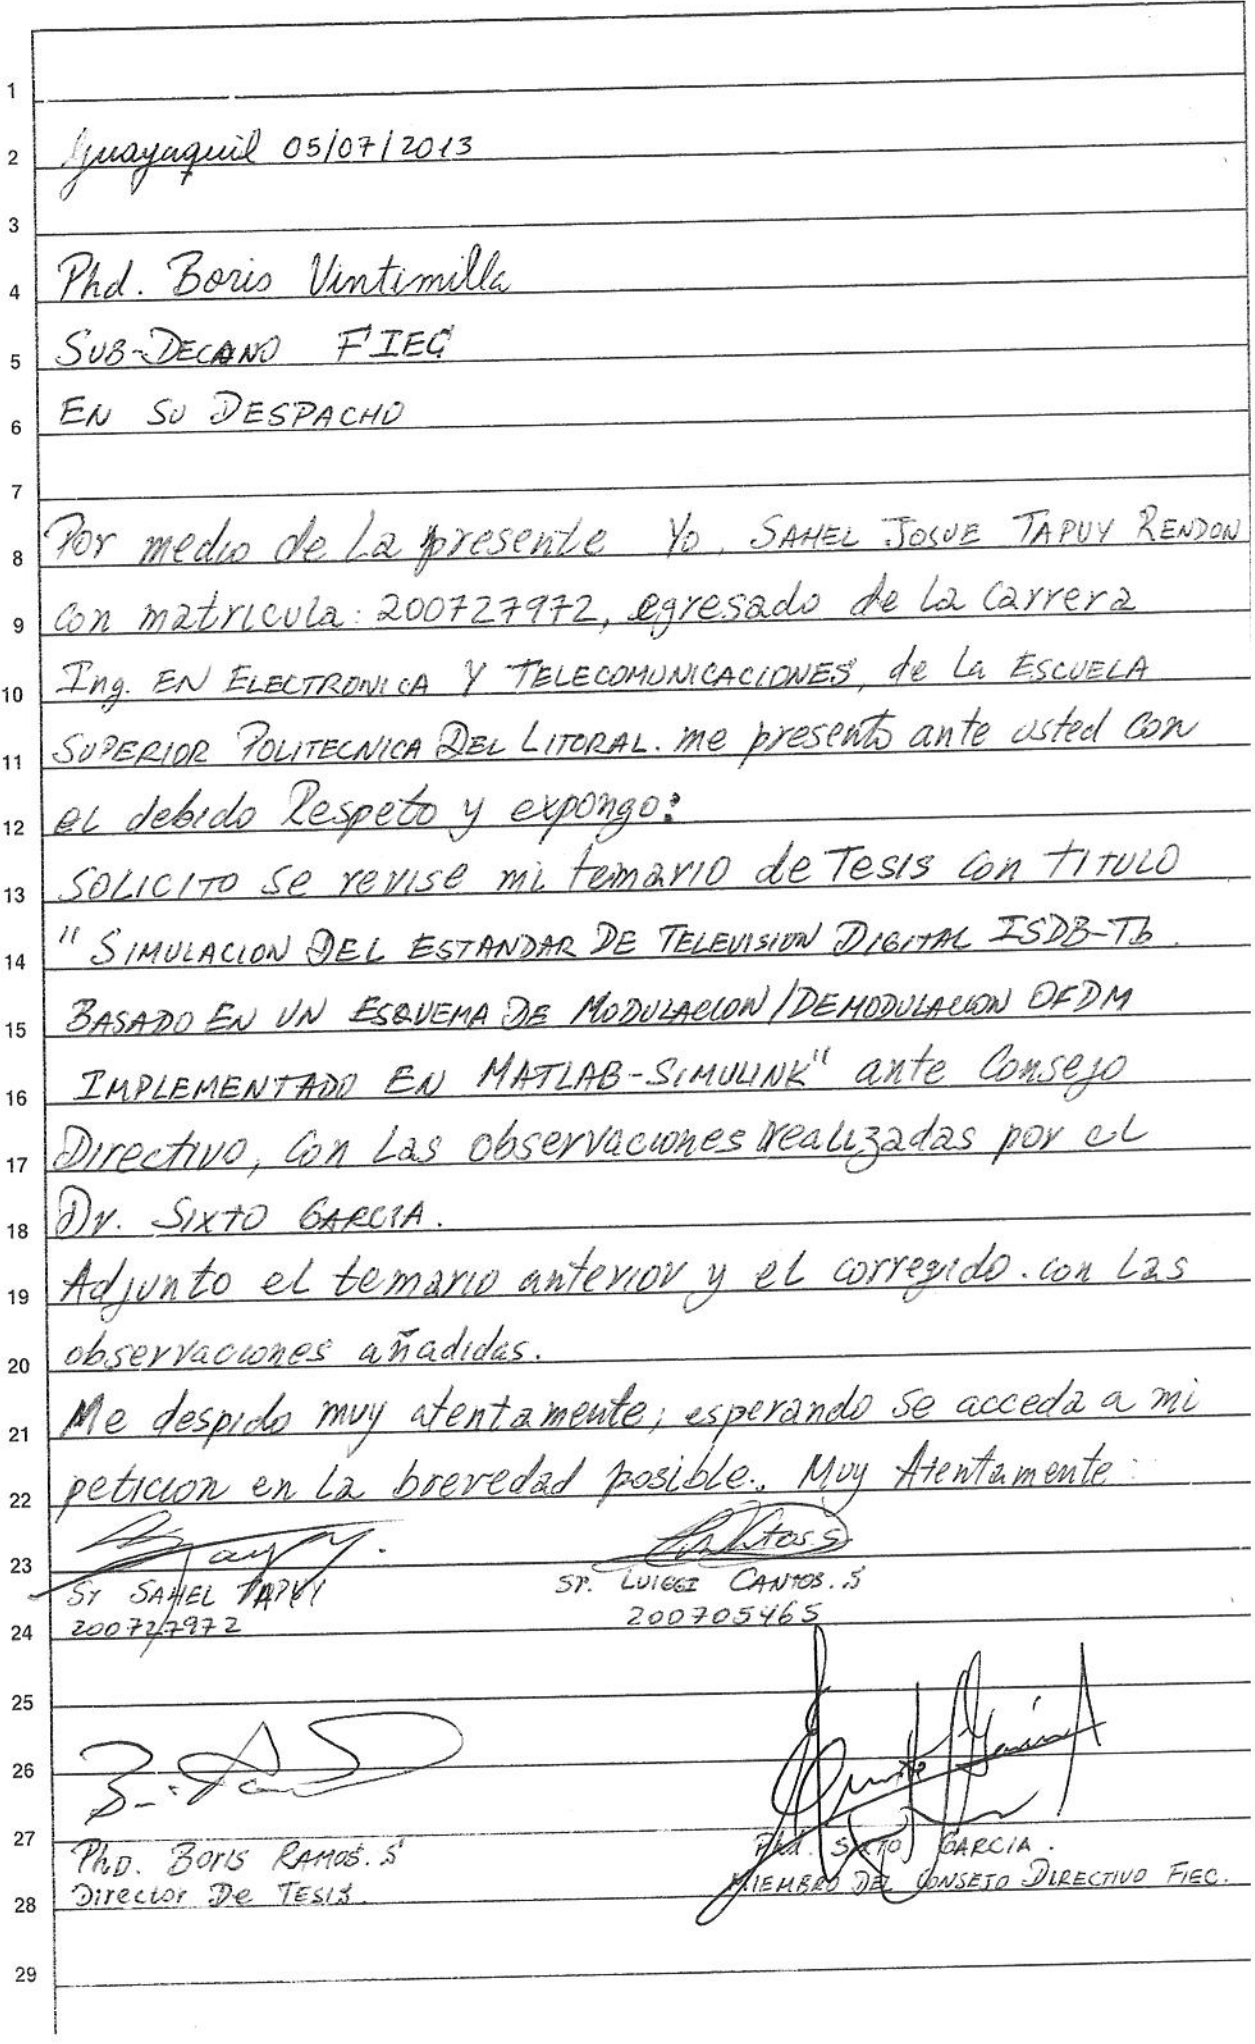 1
2 Guayaquil 05/07/2013
3
4 Phd. Boris Vintimilla
5 SUB-DECANO FIEC
6 EN SU DESPACHO
7
8 Por medio de La presente Yo, SAHEL JOSUE TAPUY RENDON
9 con matricula: 200727972, egresado de La Carrera
10 Ing. EN ELECTRONICA Y TELECOMUNICACIONES, de La ESCUELA
11 SUPERIOR POLITECNICA DEL LITORAL. me presento ante usted con
12 el debido Respeto y expongo:
13 SOLICITO se revise mi temario de Tesis con TITULO
14 "SIMULACION DEL ESTANDAR DE TELEVISION DIGITAL ISDB-Tb.
15 BASADO EN UN ESQUEMA DE MODULACION/DEMODULACION OFDM
16 IMPLEMENTADO EN MATLAB-SIMULINK" ante Consejo
17 Directivo, Con Las observaciones realizadas por el
18 Dr. SIXTO GARCIA.
19 Adjunto el temario anterior y el corregido. con Las
20 observaciones añadidas.
21 Me despido muy atentamente; esperando se acceda a mi
22 peticion en La brevedad posible. Muy Atentamente:
23 Sr SAHEL TAPUY Sr. LUIGGI CANTOS. S
24 200727972 200705465
25
26
27 PhD. Boris RAMOS. S Phd. SIXTO GARCIA.
28 Director De TESIS. MIEMBRO DEL CONSEJO DIRECTIVO FIEC.
29